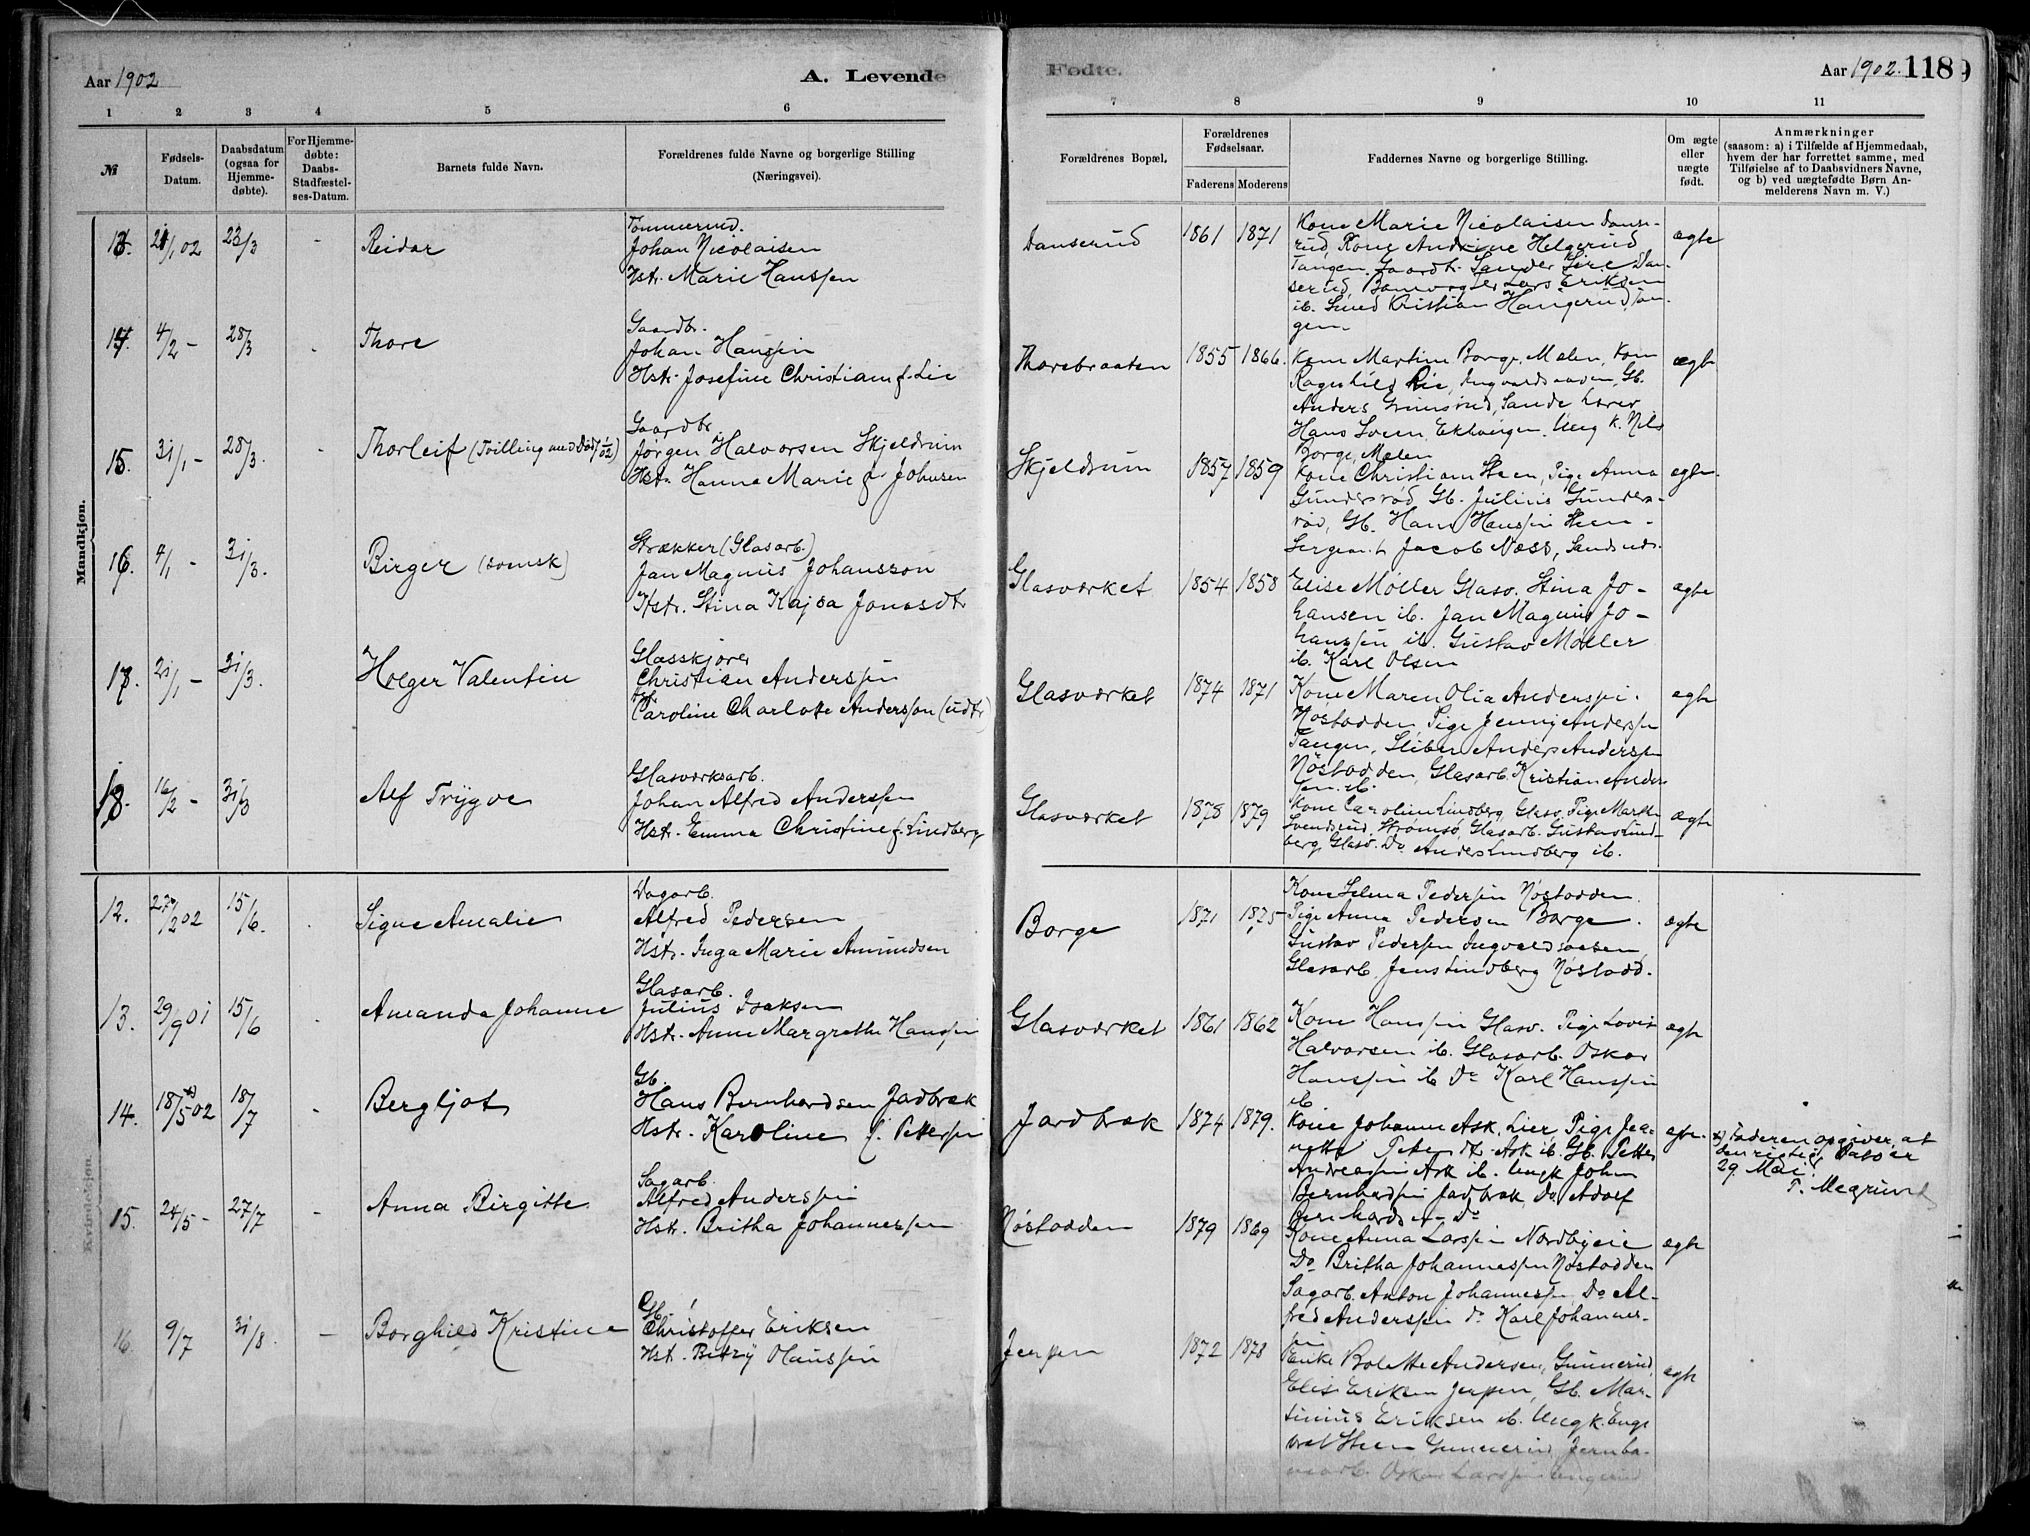 Aar 1902
A. Levende
Fødte.
Aar 1902.
118
1 2 3 4 5 6 7 8 9 10 11
№
Fødsels-
Datum.
Daabsdatum
(ogsaa for
Hjemme-
døbte).
For Hjemme-
døbte:
Daabs-
Stadfæstel-
ses-Datum.
Barnets fulde Navn.
Forældrenes fulde Navne og borgerlige Stilling
(Næringsvei).
Forældrenes Bopæl.
Forældrenes
Fødselsaar.
Faderens Moderens
Faddernes Navne og borgerlige Stilling.
Om ægte
eller
uægte
født.
Anmærkninger
(saasom: a) i Tilfælde af Hjemmedaab,
hvem der har forrettet samme, med
Tilføielse af to Daabsvidners Navne,
og b) ved uægtefødte Børn An-
melderens Navn m. V.)
Mandkjøn.
21/1 02 23/3 - Reidar
Tømmermd.
Johan Nicolaisen
Hstr. Marie Hanssen
Danserud 1861 1871
Kone Marie Nicolaisen Danse-
rud, Kone Andrine Helgerud
Tangen. Gaardbr. Sander Lie Dan-
serud, Banevogter Lars Eriksen
ib. Smed Kristian Haugerud, Tan-
gen.
ægte
4/2 - 28/3 Thore
Gaardbr.
Johan Hanssen
Hstr. Josefine Christians f. Lie
Thorebraaten 1855 1866.
Kone Martine Borge, Malen, Kone
Ragnhild Lie, Gb.
Anders Grimsrud, Sande Lærer
Hans Sveen, Ungk. Nils
Borge, Malen
ægte
15. 31/1 - 28/3. - Thorleif (Tvilling med Død 1/02)
Gaardbr.
Jørgen Halvorsen Skjeldrum
Hstr. Hanna Marie f. Johnsen
Skjeldrum 1857 1859
Kone Christiane Steen, Pige Anna
Gundersrød Gb. Julius Gunders-
rød, Gb. Hans Hanssen Steen -
Sergeant Jacob Næss, Sandsud.
ægte.
16. 4/1 - 31/3. Birger (svensk)
Strækker (Glasarb.)
Jan Magnus Johansson
Hstr. Stina Kajsa Jonasdtr
Glasværket 1854 1858
Elise Møller Glasv. Stina Jo-
hansen ib. Jan Magnus Jo-
hanssen ib. Gustav Møller
ib. Karl Olsen
ægte
17. 21/1 - 31/3. Holger Valentin
Glasskjører
Christian Anderssen
Caroline Charlotte Andersson (udtr)
Glasværket 1874 1871
Kone Maren Olia Anderssen.
Nøstodden, Pige Jenny Anderssen
Tangen, Sliber Anders Anderssen
Nøstodden, Glasarb. Kristian Ander-
sen ib.
ægte
18. 16/2 - 31/3 Alf Trygve
Glasværksarb.
Johan Alfred Anderssen
Hstr. Emma Christine f. Lindberg
Glasværket 1878 1879
Kone Caroline Lindberg, Glasv. Pige Marthe
Svendsrud, Strømsø, Glasarb. Gustav Lind-
berg Glasv. Do Anders Lindberg ib.
ægte
Kvindekjøn.
12. 27/2 02 15/6. Signe Amalie
Dagarb.
Alfred Pedersen
Hstr. Inga Marie Amundsen
Borge 1871 1875
Kone Selma Pederssen Nøstodden.
Pige Anna Pedersen Borge.
Gustav Pederssen Ingvaldsaasen
Glasarb. Jens Lindberg Nøstodd.
ægte
13. 29/9 01 15/6 Amanda Johanne
Glasarb.
Julius Isaksen
Hstr. Anne Margrethe Hanssen
Glasværket 1861 1862
Kone Hanssen Glasv. Pige Lovise
Halvorsen ib. Glasarb. Oskar
Hanssen ib Do Karl Hanssen
ib
ægte
14. 18/5 02 18/7 Bergljot
Gb.
Hans Bernhardsen Jødbrek
Hstr. Karoline f. Petterssen
Jordbræk 1874 1879.
Kone Johanne Ask, Lier, Pige Jea-
nette Ask ib. Gb. Petter
Andreassen Ask ib. Ungk. Johan
Bernhardsen Jødbrek, Do Adolf
Bernhardsen Do
ægte.
x) Faderen opgiver, at
den rigtige Dato er
29 Mai
15. 24/5 - 27/7 Anna Birgitte
Sagarb.
Alfred Anderssen
Hstr. Britha Johannessen
Nøstodden 1879 1869
Kone Anna Larssen Nordbyeie
Do Britha Johannessen Nøstodden
Sagarb. Anton Johannessen Do Al-
fred Anderssen do Karl Johannes-
sen
ægte
16 9/7 31/8. - Borghild Kristine
Gb.
Christoffer Eriksen
Hst. Betzy Olaussen
Jenssen 1872 1878
Enke Bolette Andersen, Gunnerud,
Elise Eriksen Jenssen, Gb. Mar-
tinius Eriksen ib. Ungk. Enge-
bret Steen Gunnerud Jernba-
nearb. Oskar Larssen Engerud
ægte